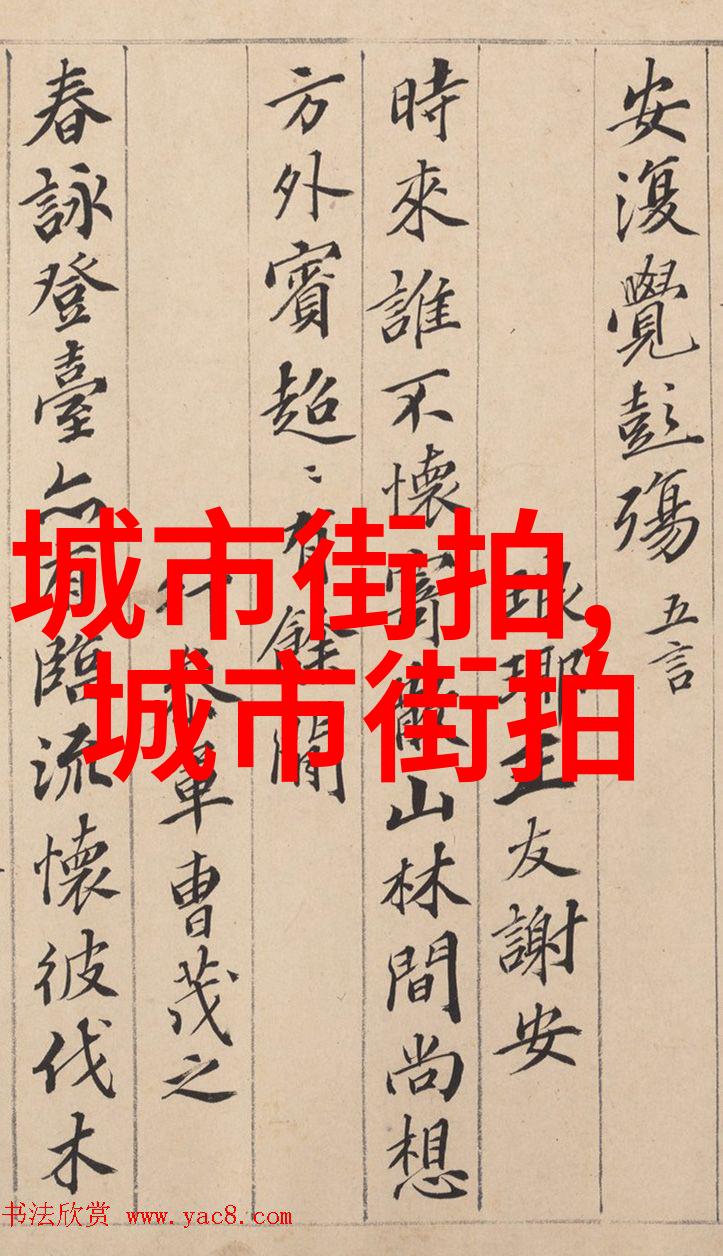 安復覺彭殤 五言
琅琊王友謝安
時來誰不懷寄散山林間尚想
方外賓超〻有餘閒
行參軍曹茂之
春詠登臺亦有臨流懷彼伐木
城市街拍,
城市街拍
书法欣赏 www.yac8.com